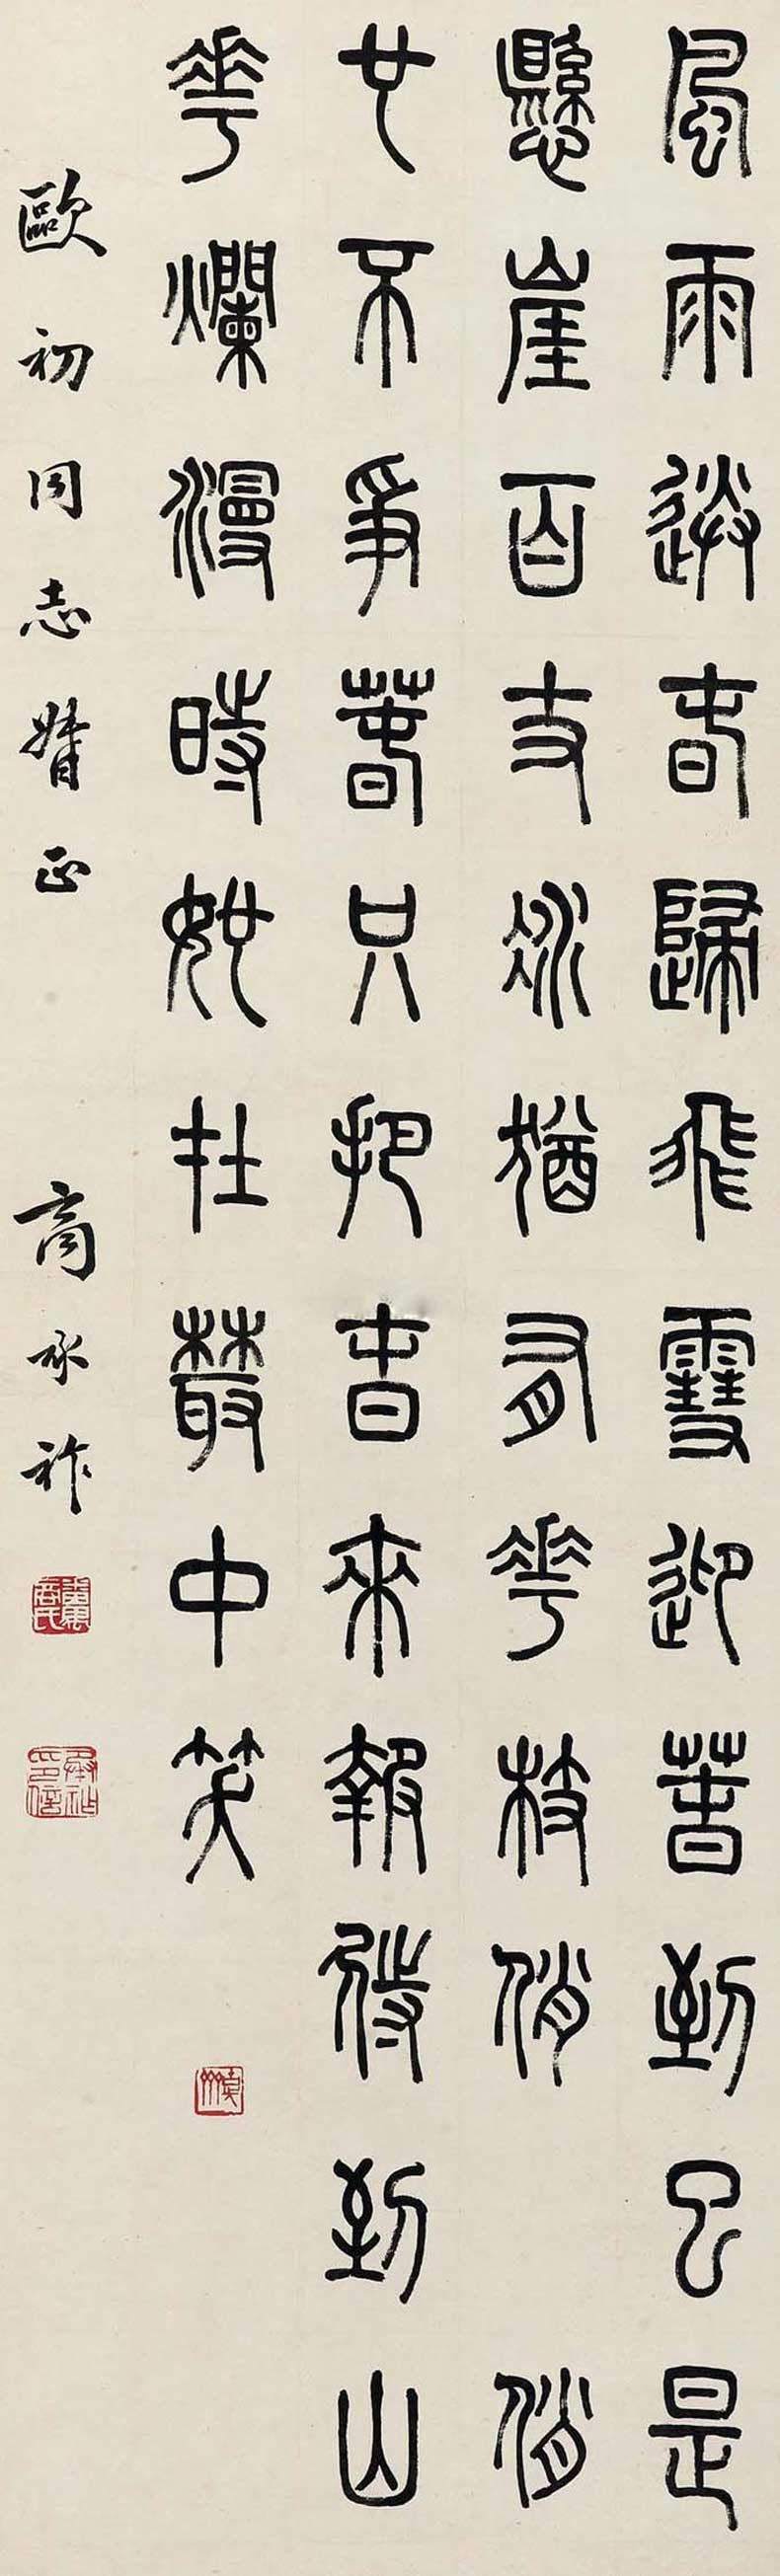 風雨送春歸飛雪迎春到已是
懸崖百丈冰猶有花枝俏 俏
也不爭春只把春來報待到山
花爛漫時她在叢中笑
歐初同志督正 商承祚
承祚印信